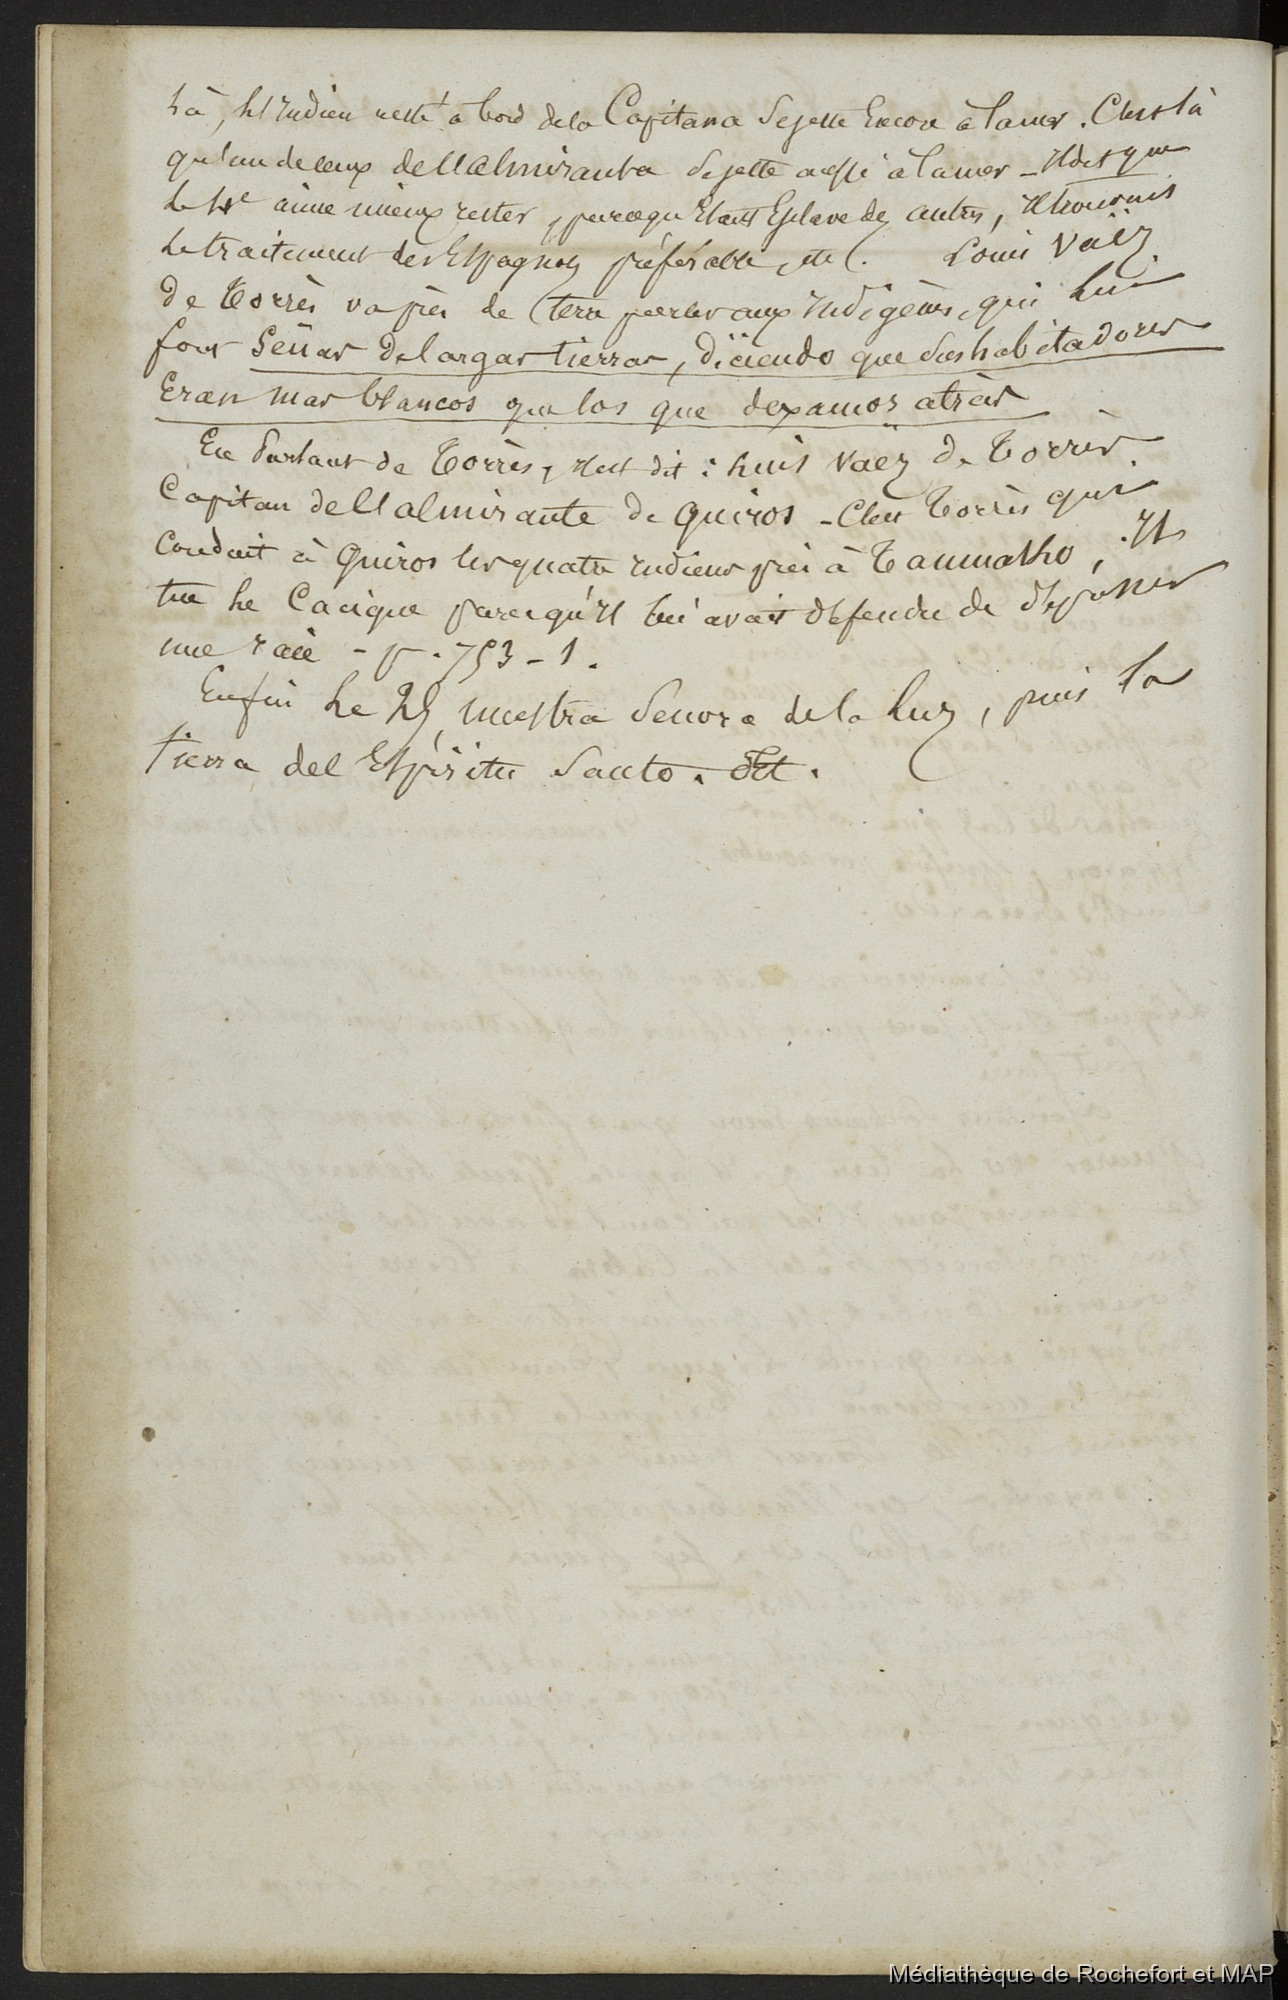 Là, l'Indien resté à bord de la Capitana se jette encore à la mer. C'est là
que l'un de ceux de l'Almiranta se jette aussi à la mer _ Il dit que
le 4e aime mieux rester, parcequ'étant Esclave des autres, Il trouvait
le traitement des Espagnols préférable, etc. Louis Vaëz
de Torrès va près de terre parler aux Indigènes, qui lui
font Señas de largas tierras, diciendo que sus habitadores
Eran mas blancos que los que dexamos atràs
En Parlant de Torrès, Il est dit : Luis Vaëz de Torrès
Capitan de l'almirante de Quiros - C'est Torrès qui
conduit à Quiros les quatre Indiens pris à Taumatho ; Il
tue le Cacique parcequ'il lui avait défendu de dépasser
une raie - p. 753 - 1.
Enfin le 25, nuestra Senora de la Luz, puis la
tierra del Espiritu Santo. Etc.
Médiathèque de Rochefort et MAP